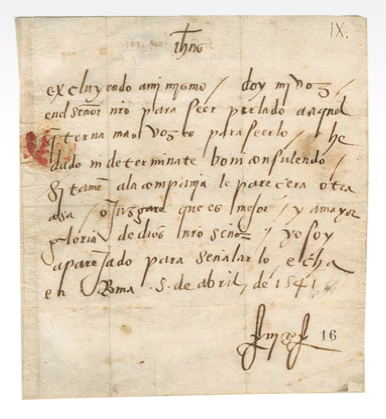 IX.
ihus
excluyendo a mi mismo / doy mi voz /
en el señor nro para seer perlado a aquel
q terna mas vozes para seerlo / he
dado indeterminate boni consulendo /
si tamen a la compañia le parecera otra
cosa / o Juzgare que es mejor / y a mayor
gloria de dios nro señor / yo soy
aparejado para señalarlo / echa
en Roma .5. de abril, de 1541
16